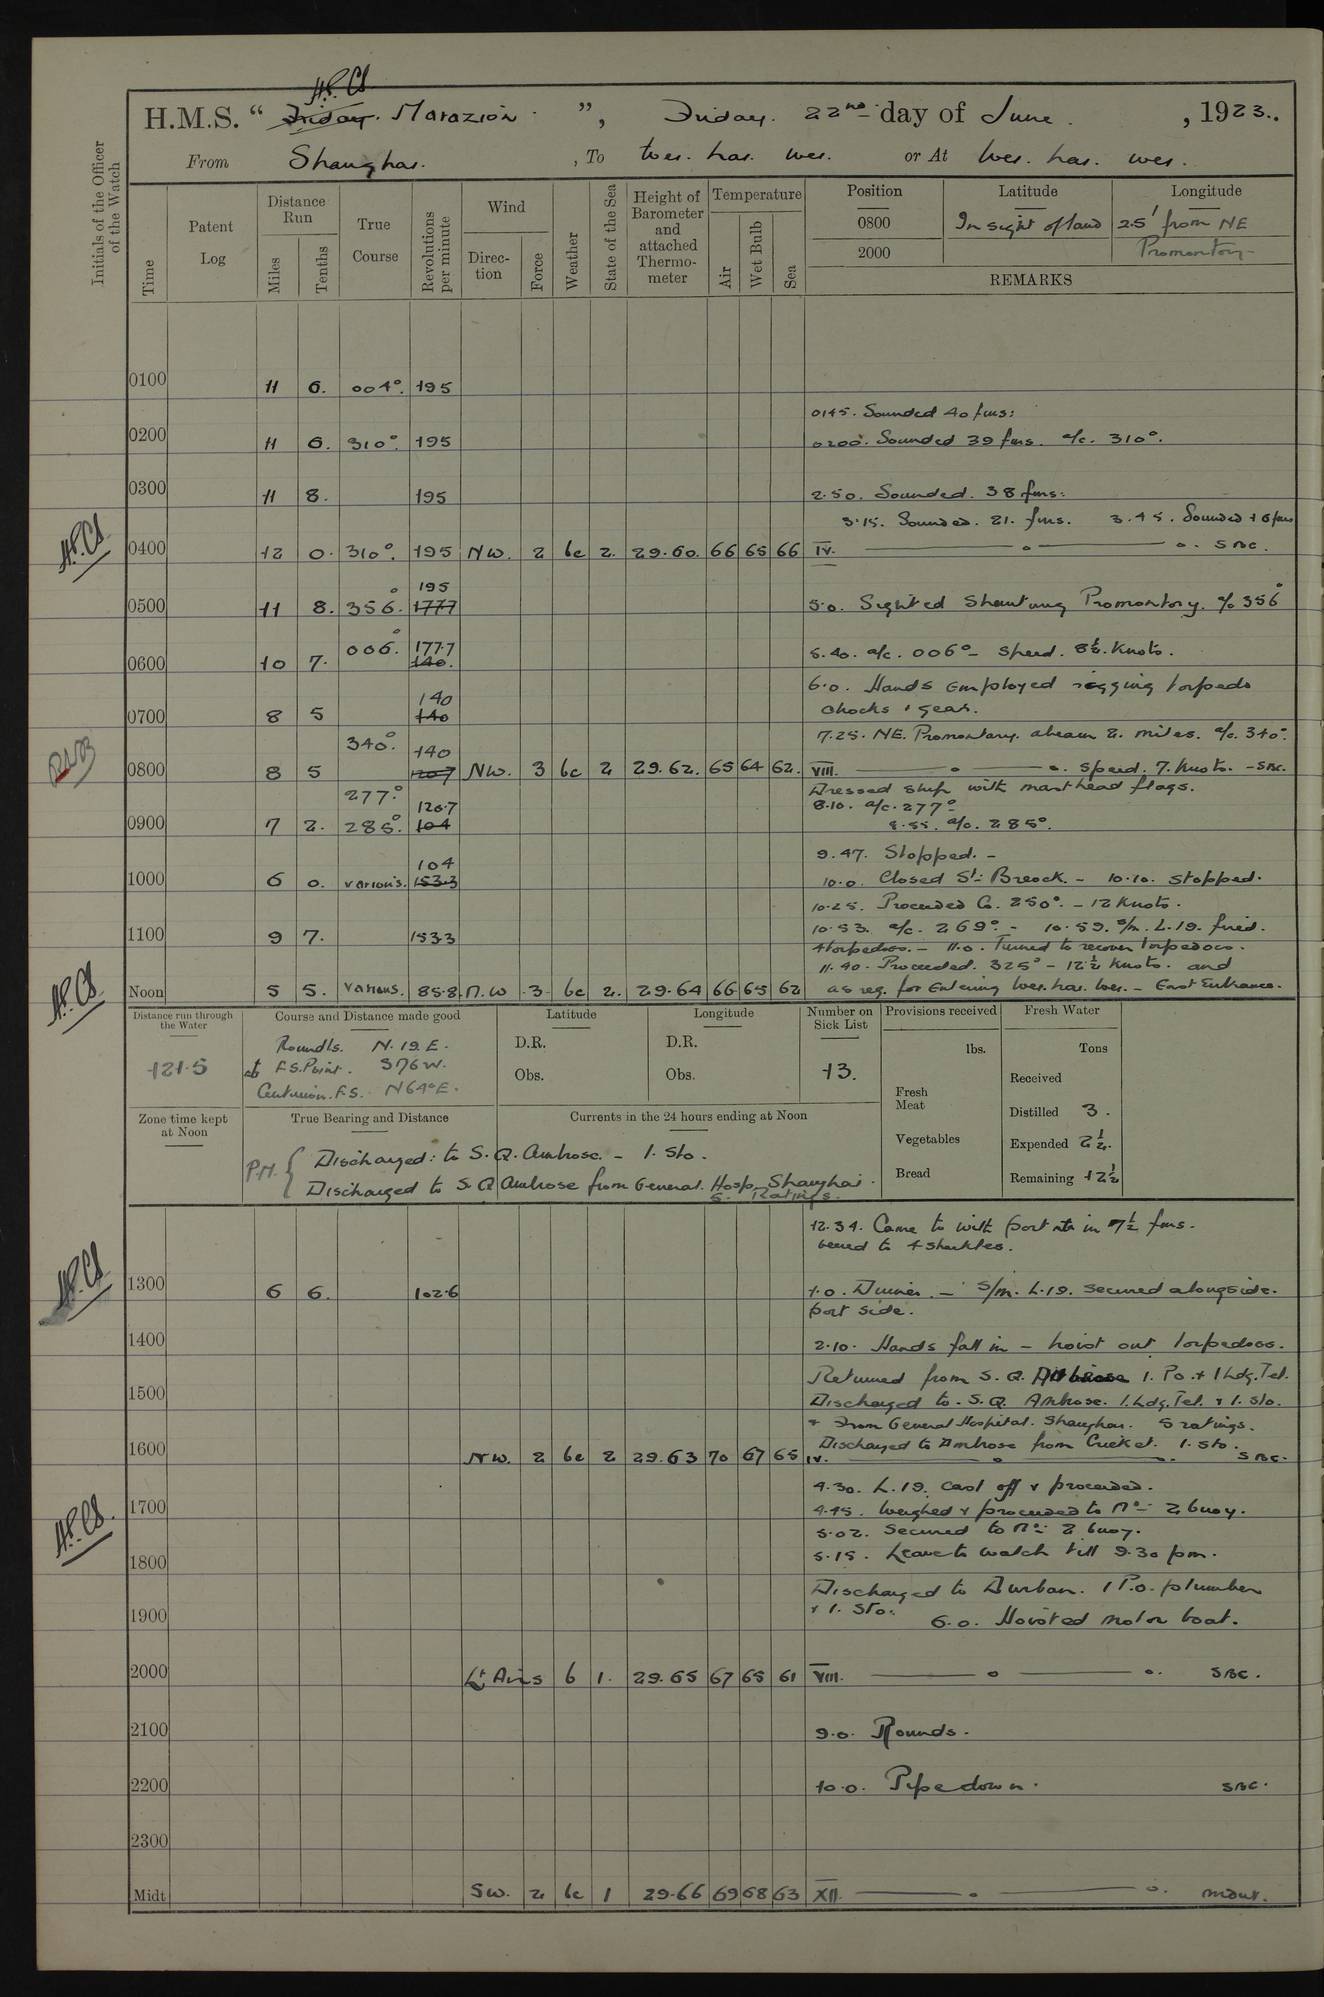 H.P.CS
H.M.S. “ Friday. Marazion. ”, Friday. 22nd day of June. , 1923.
From Shanghai. , To Wei. hai. wei. or At Wei. hai. wei.
Initials of the Officer of the Watch
Time Patent Log Distance Run Miles Tenths True Course Revolutions per minute Wind Direction Force Weather State of the Sea Height of Barometer and attached Thermometer Temperature Air Wet Bulb Sea
Position Latitude Longitude
0800 In sight of land 25' from NE
2000 Promontory
REMARKS
0100 11 6. 004°. 195
0145. Sounded 40 fms:
0200 11 6. 310°. 195 0200. Sounded 39 fms. a/c. 310°.
0300 11 8. 195 2.50. Sounded. 38 fms:
3.15. Sounded. 21. fms. 3.45. Sounded 16 fms
0400 12 0. 310°. 195 NW. 2 bc 2. 29.60. 66 65 66 IV. SBC.
195
0500 11 8. 356°. 1777 5.0. Sighted Shantung Promontory. a/c 356°
006°. 177.7
0600 10 7. 140. 5.40. a/c. 006° – Speed. 8½. Knots.
6.0. Hands employed rigging torpedo
140
0700 8 5 140 chocks & gear.
340°. 140 7.25. NE. Promontory. abeam 2. miles. a/c. 340°.
0800 8 5 120.7 NW. 3 bc 2 29.62. 65 64 62. VIII. Speed. 7. Knots. – SBC.
Dressed ship with masthead flags.
277° 120.7 8.10. a/c. 277°
0900 7 2. 285°. 104 8.55. a/c. 285°.
104 9.47. Stopped. –
1000 6 0. various. 153.3 10.0. Closed St: Breock. – 10.10. Stopped.
10.25. Proceeded Co. 250°. – 12 Knots.
1100 9 7. 153.3 10.53. a/c. 269°. – 10.59. S/m. L.19. fired.
4 torpedoes. – 11.0. Turned to recover torpedoes.
11.40. Proceeded. 325° – 12½ Knots. and
Noon 5 5. various. 85.8. N.W 3 bc 2. 29.64 66 65 62 as req. for Entering Wei. hai. wei. – East Entrance.
Distance run through the Water
121.5
Course and Distance made good
Round Is. N. 19. E.
at F.S. Point. S 76 W.
Centurion. F.S. N 64° E.
Latitude
D.R.
Obs.
Longitude
D.R.
Obs.
Number on Sick List
13.
Provisions received
lbs.
Fresh Meat
Vegetables
Bread
Fresh Water
Tons
Received
Distilled 3.
Expended 2½.
Remaining 12½
Zone time kept at Noon
True Bearing and Distance
Currents in the 24 hours ending at Noon
P.M. { Discharged: to S.Q. Ambrose. – 1. Sto.
Discharged to S.Q Ambrose from General. Hosp. Shanghai.
5. Ratings.
12.34. Came to with port in 7½ fms.
veered to 4 shackles.
1300 6 6. 102.6 1.0. Dinner. – S/m. L.19. secured alongside.
port side.
1400 2.10. Hands fall in – hoist out torpedoes.
Returned from S.Q. Ambrose 1. Po. + 1 Ldg. Tel.
1500 Discharged to. S.Q. Ambrose. 1. Ldg. Tel. & 1. Sto.
& From General Hospital. Shanghai. 5 ratings.
Discharged to Ambrose from Cricket. 1. Sto.
1600 NW. 2 bc 2 29.63 70 67 65 IV. SBC.
4.30. L.19. cast off & proceeded.
1700 4.45. Weighed & proceeded to No: 2 buoy.
5.02. Secured to No: 2 buoy.
1800 5.15. Leave to watch till 9.30 pm.
Discharged to Durban. 1 P.O. plumber
1900 & 1. Sto. 6.0. Hoisted motor boat.
2000 Lt Airs 6 1. 29.65 67 65 61 VIII. SBC.
2100 9.0. Rounds.
2200 10.0. Pipe down. SBC.
2300
Midt SW. 2 bc 1 29.66 69 68 63 XII.